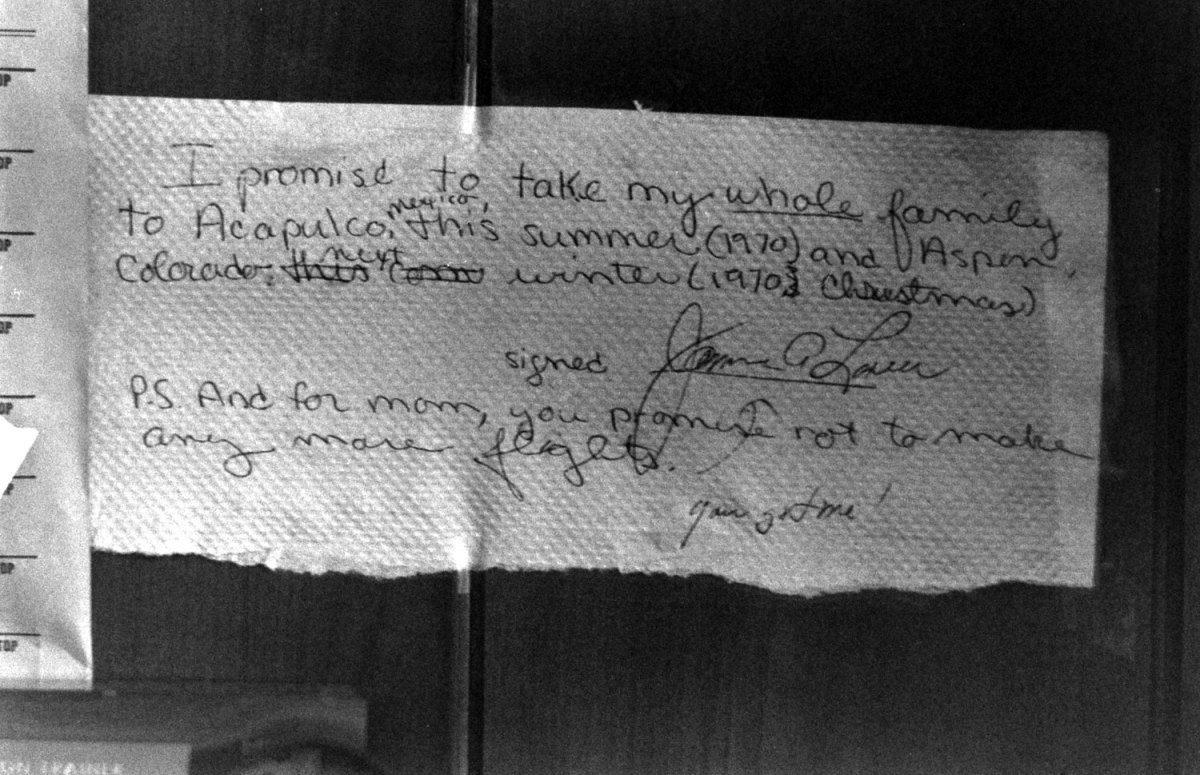 I promise to take my whole family
to Acapulco, Mexico, this summer (1970) and Aspen,
Colorado, next winter (1970 Christmas)
signed James A Lovell
P.S And for mom, you promise not to make
any more flights.
you got me!
OP
OP
OP
OP
OP
OP
TOP
GN TRAINER